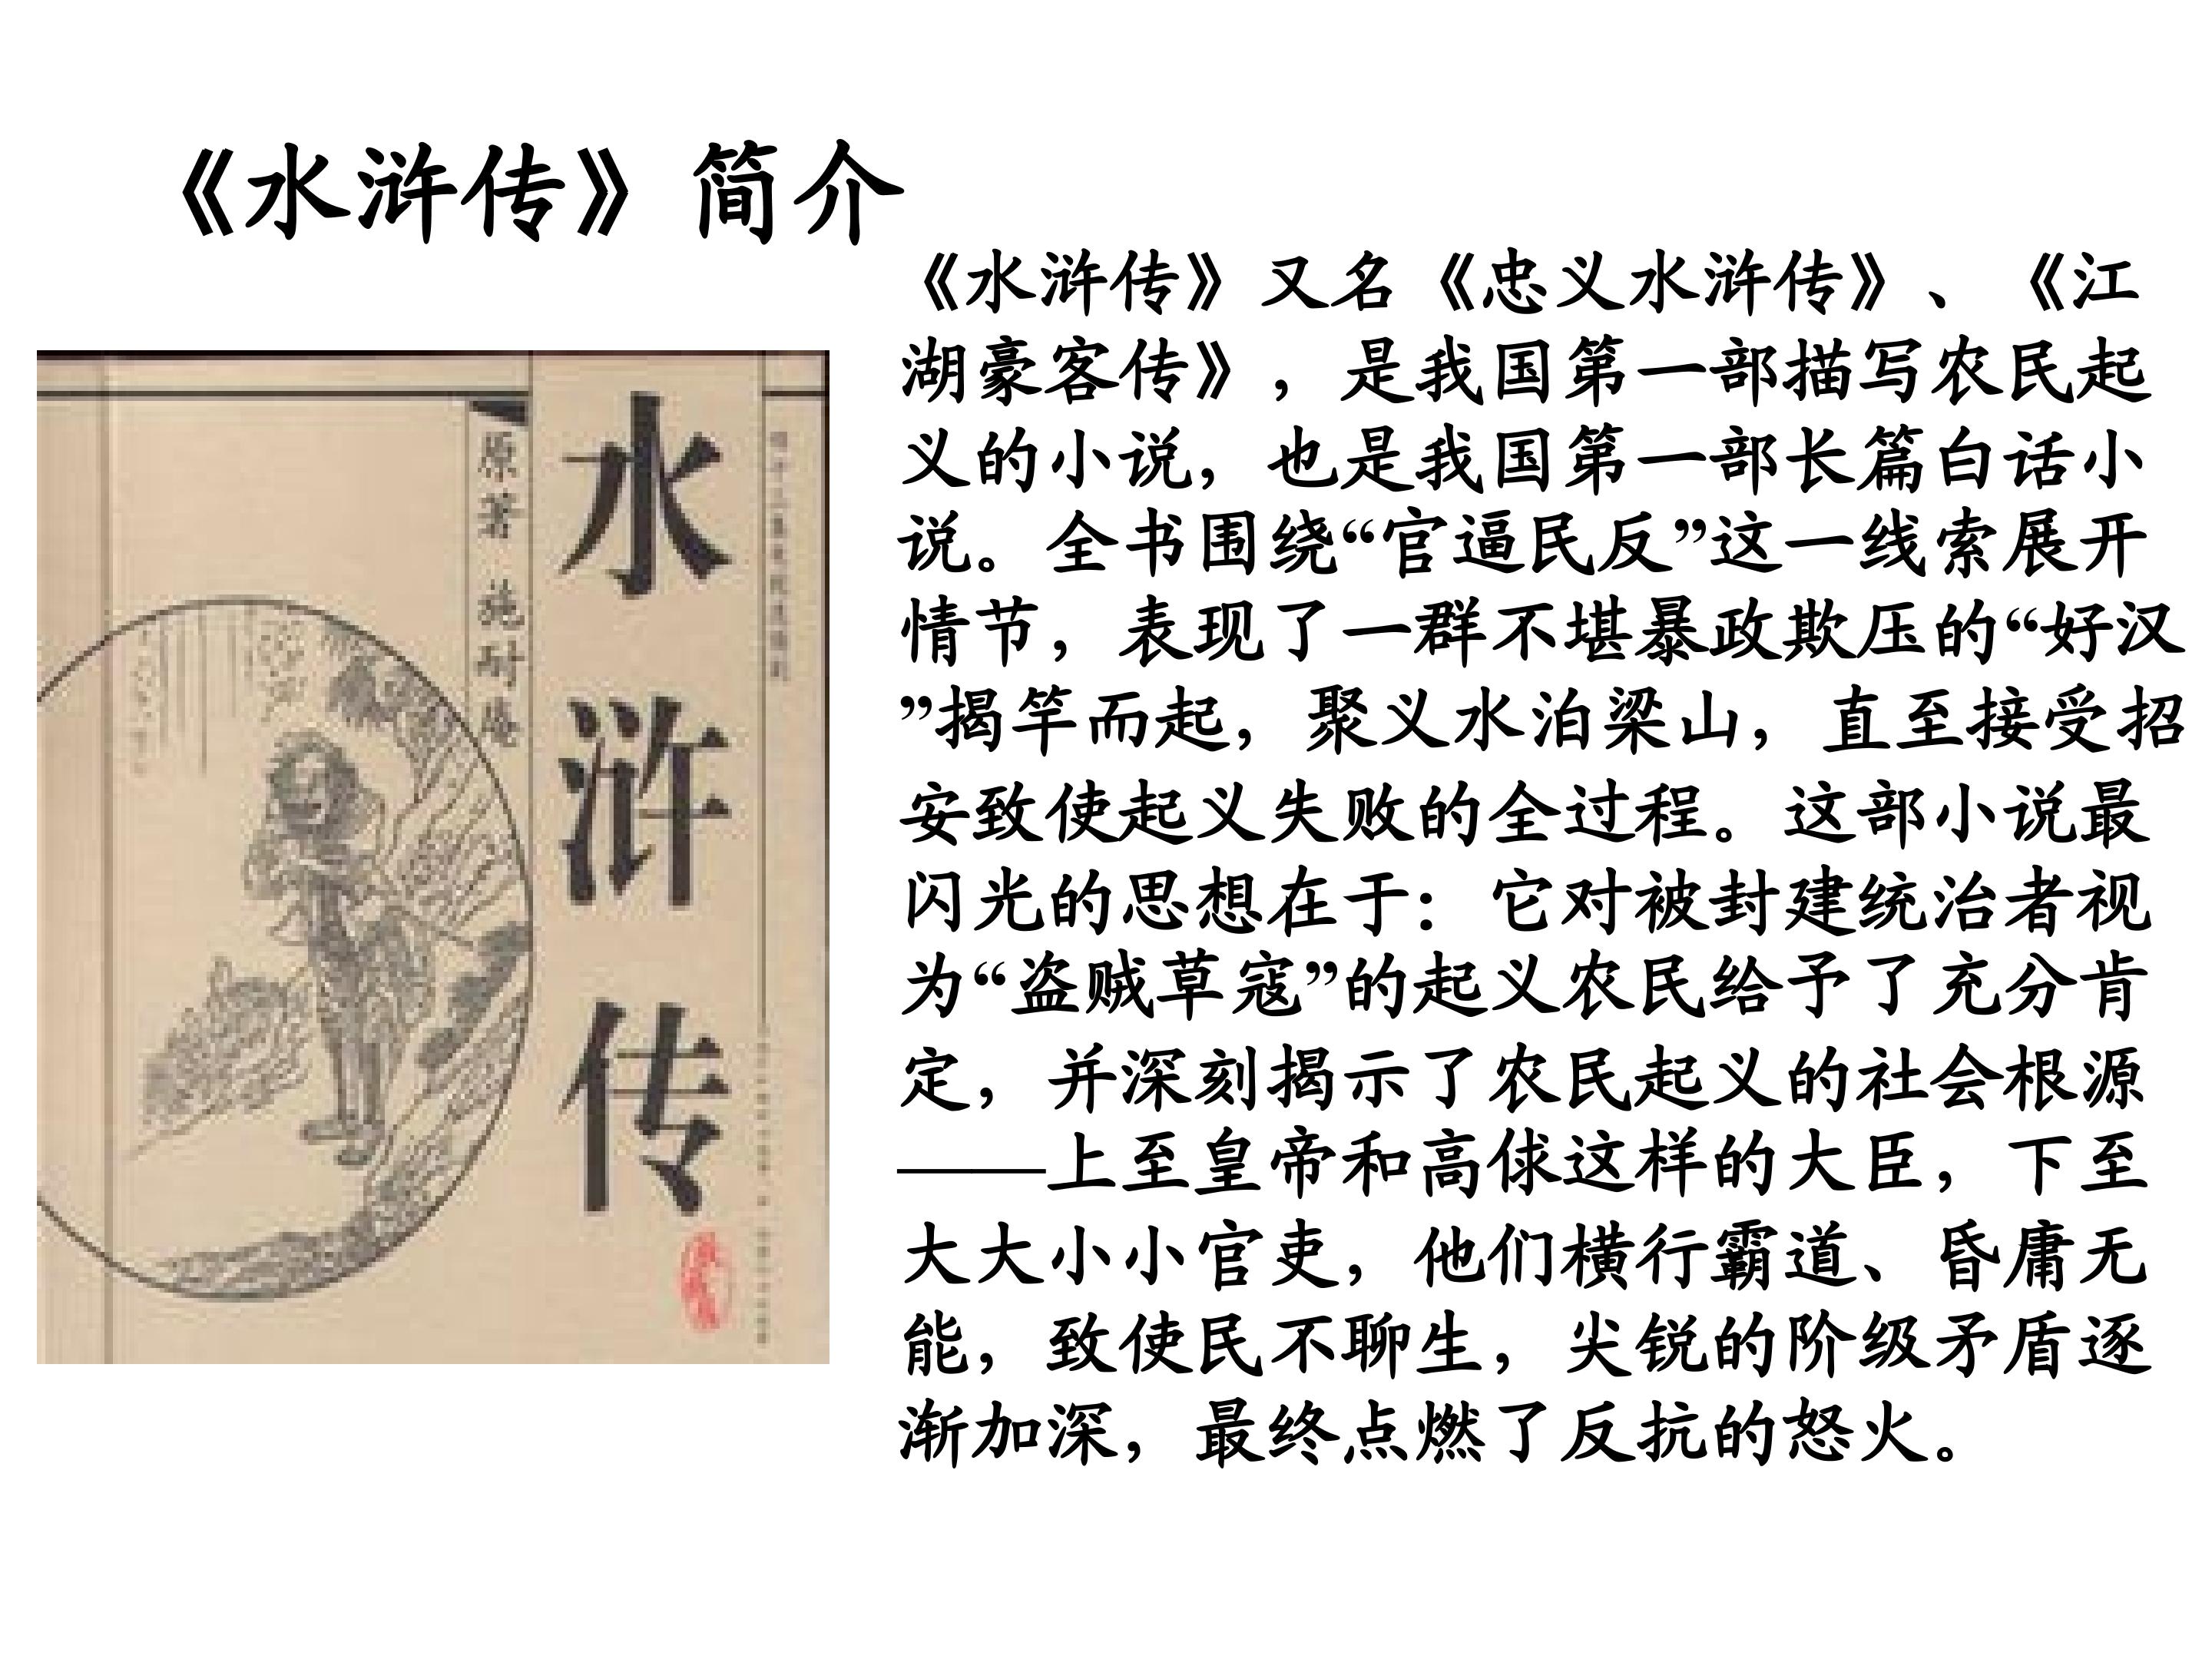 《水浒传》简介
《水浒传》又名《忠义水浒传》、《江
湖豪客传》，是我国第一部描写农民起
义的小说，也是我国第一部长篇白话小
说。全书围绕“官逼民反”这一线索展开
情节，表现了一群不堪暴政欺压的“好汉
”揭竿而起，聚义水泊梁山，直至接受招
安致使起义失败的全过程。这部小说最
闪光的思想在于：它对被封建统治者视
为“盗贼草寇”的起义农民给予了充分肯
定，并深刻揭示了农民起义的社会根源
——上至皇帝和高俅这样的大臣，下至
大大小小官吏，他们横行霸道、昏庸无
能，致使民不聊生，尖锐的阶级矛盾逐
渐加深，最终点燃了反抗的怒火。
水浒传
原著 施耐庵